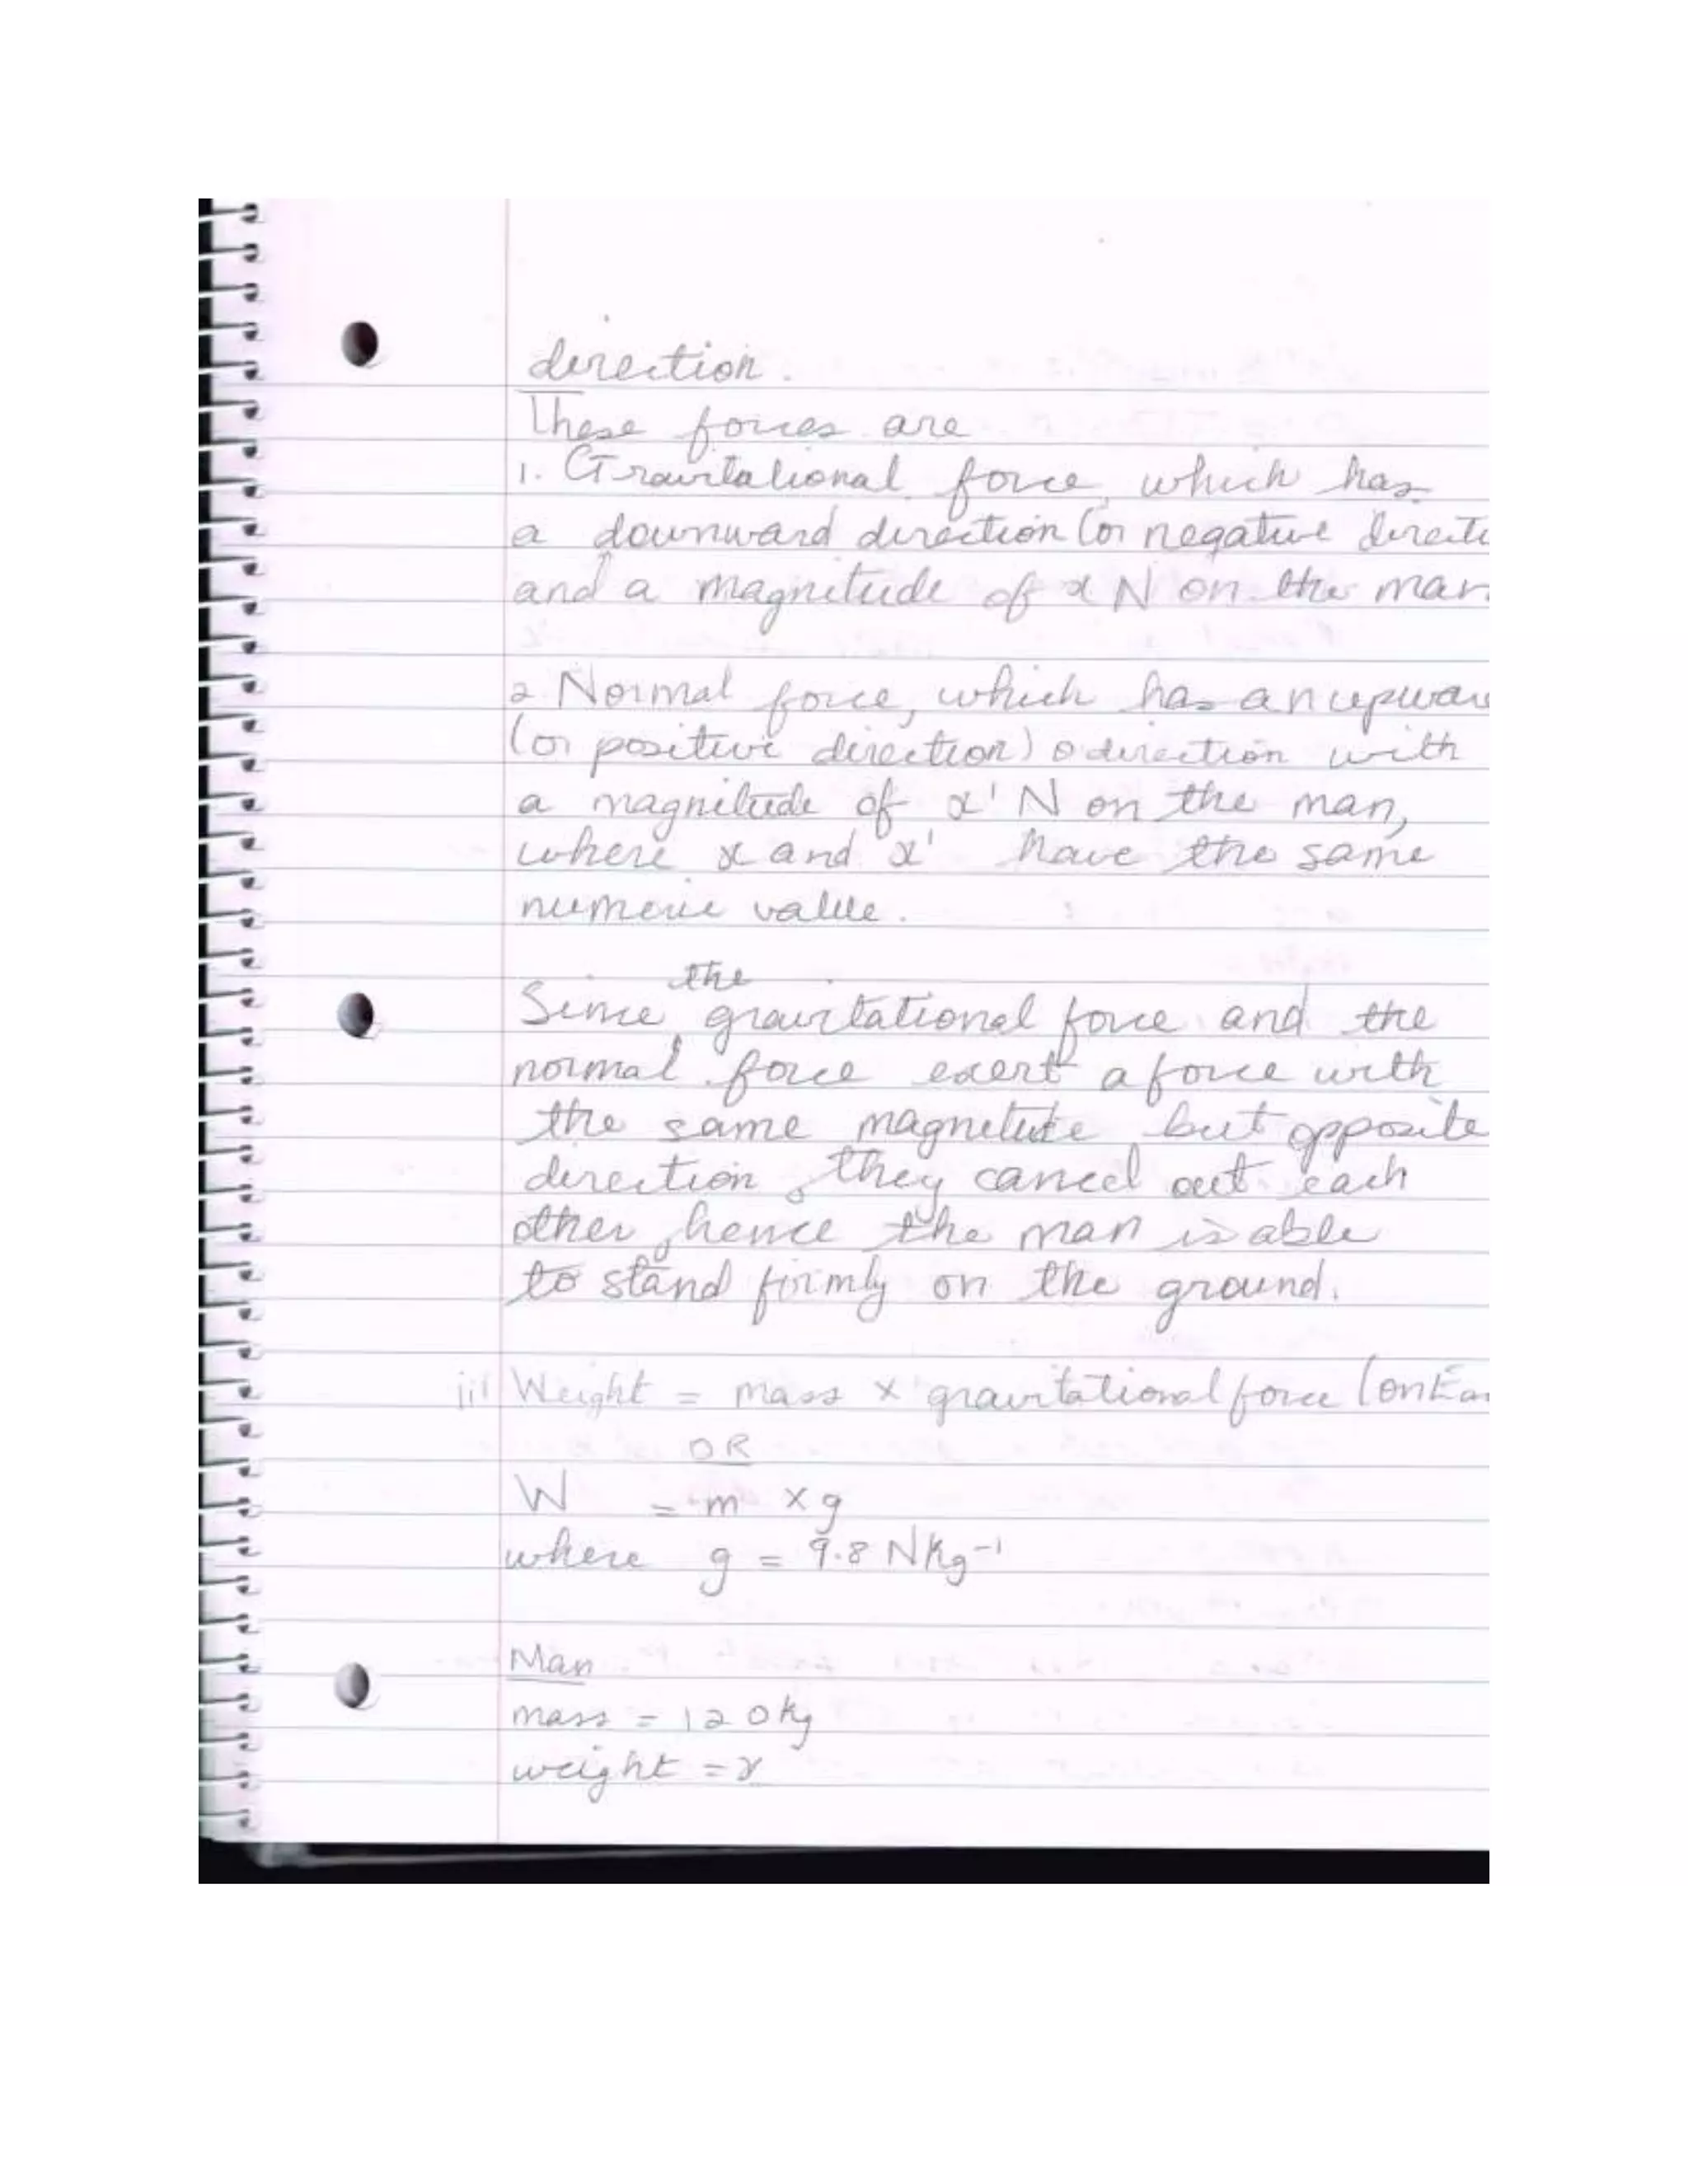 direction.
These forces are
1. Gravitational force, which has
a downward direction (or negative directi
and a magnitude of x N on the man
2 Normal force, which has an upwar
(or positive direction) direction with
a magnitude of x' N on the man,
where x and x' have the same
numeric value.
the
Since gravitational force and the
normal force exert a force with
the same magnitude but opposite
direction, they cancel out each
other, hence the man is able
to stand firmly on the ground.
iii Weight = mass x gravitational force (on Ear
OR
W = m x g
where g = 9.8 N Kg⁻¹
Man
mass = 120 kg
weight = x